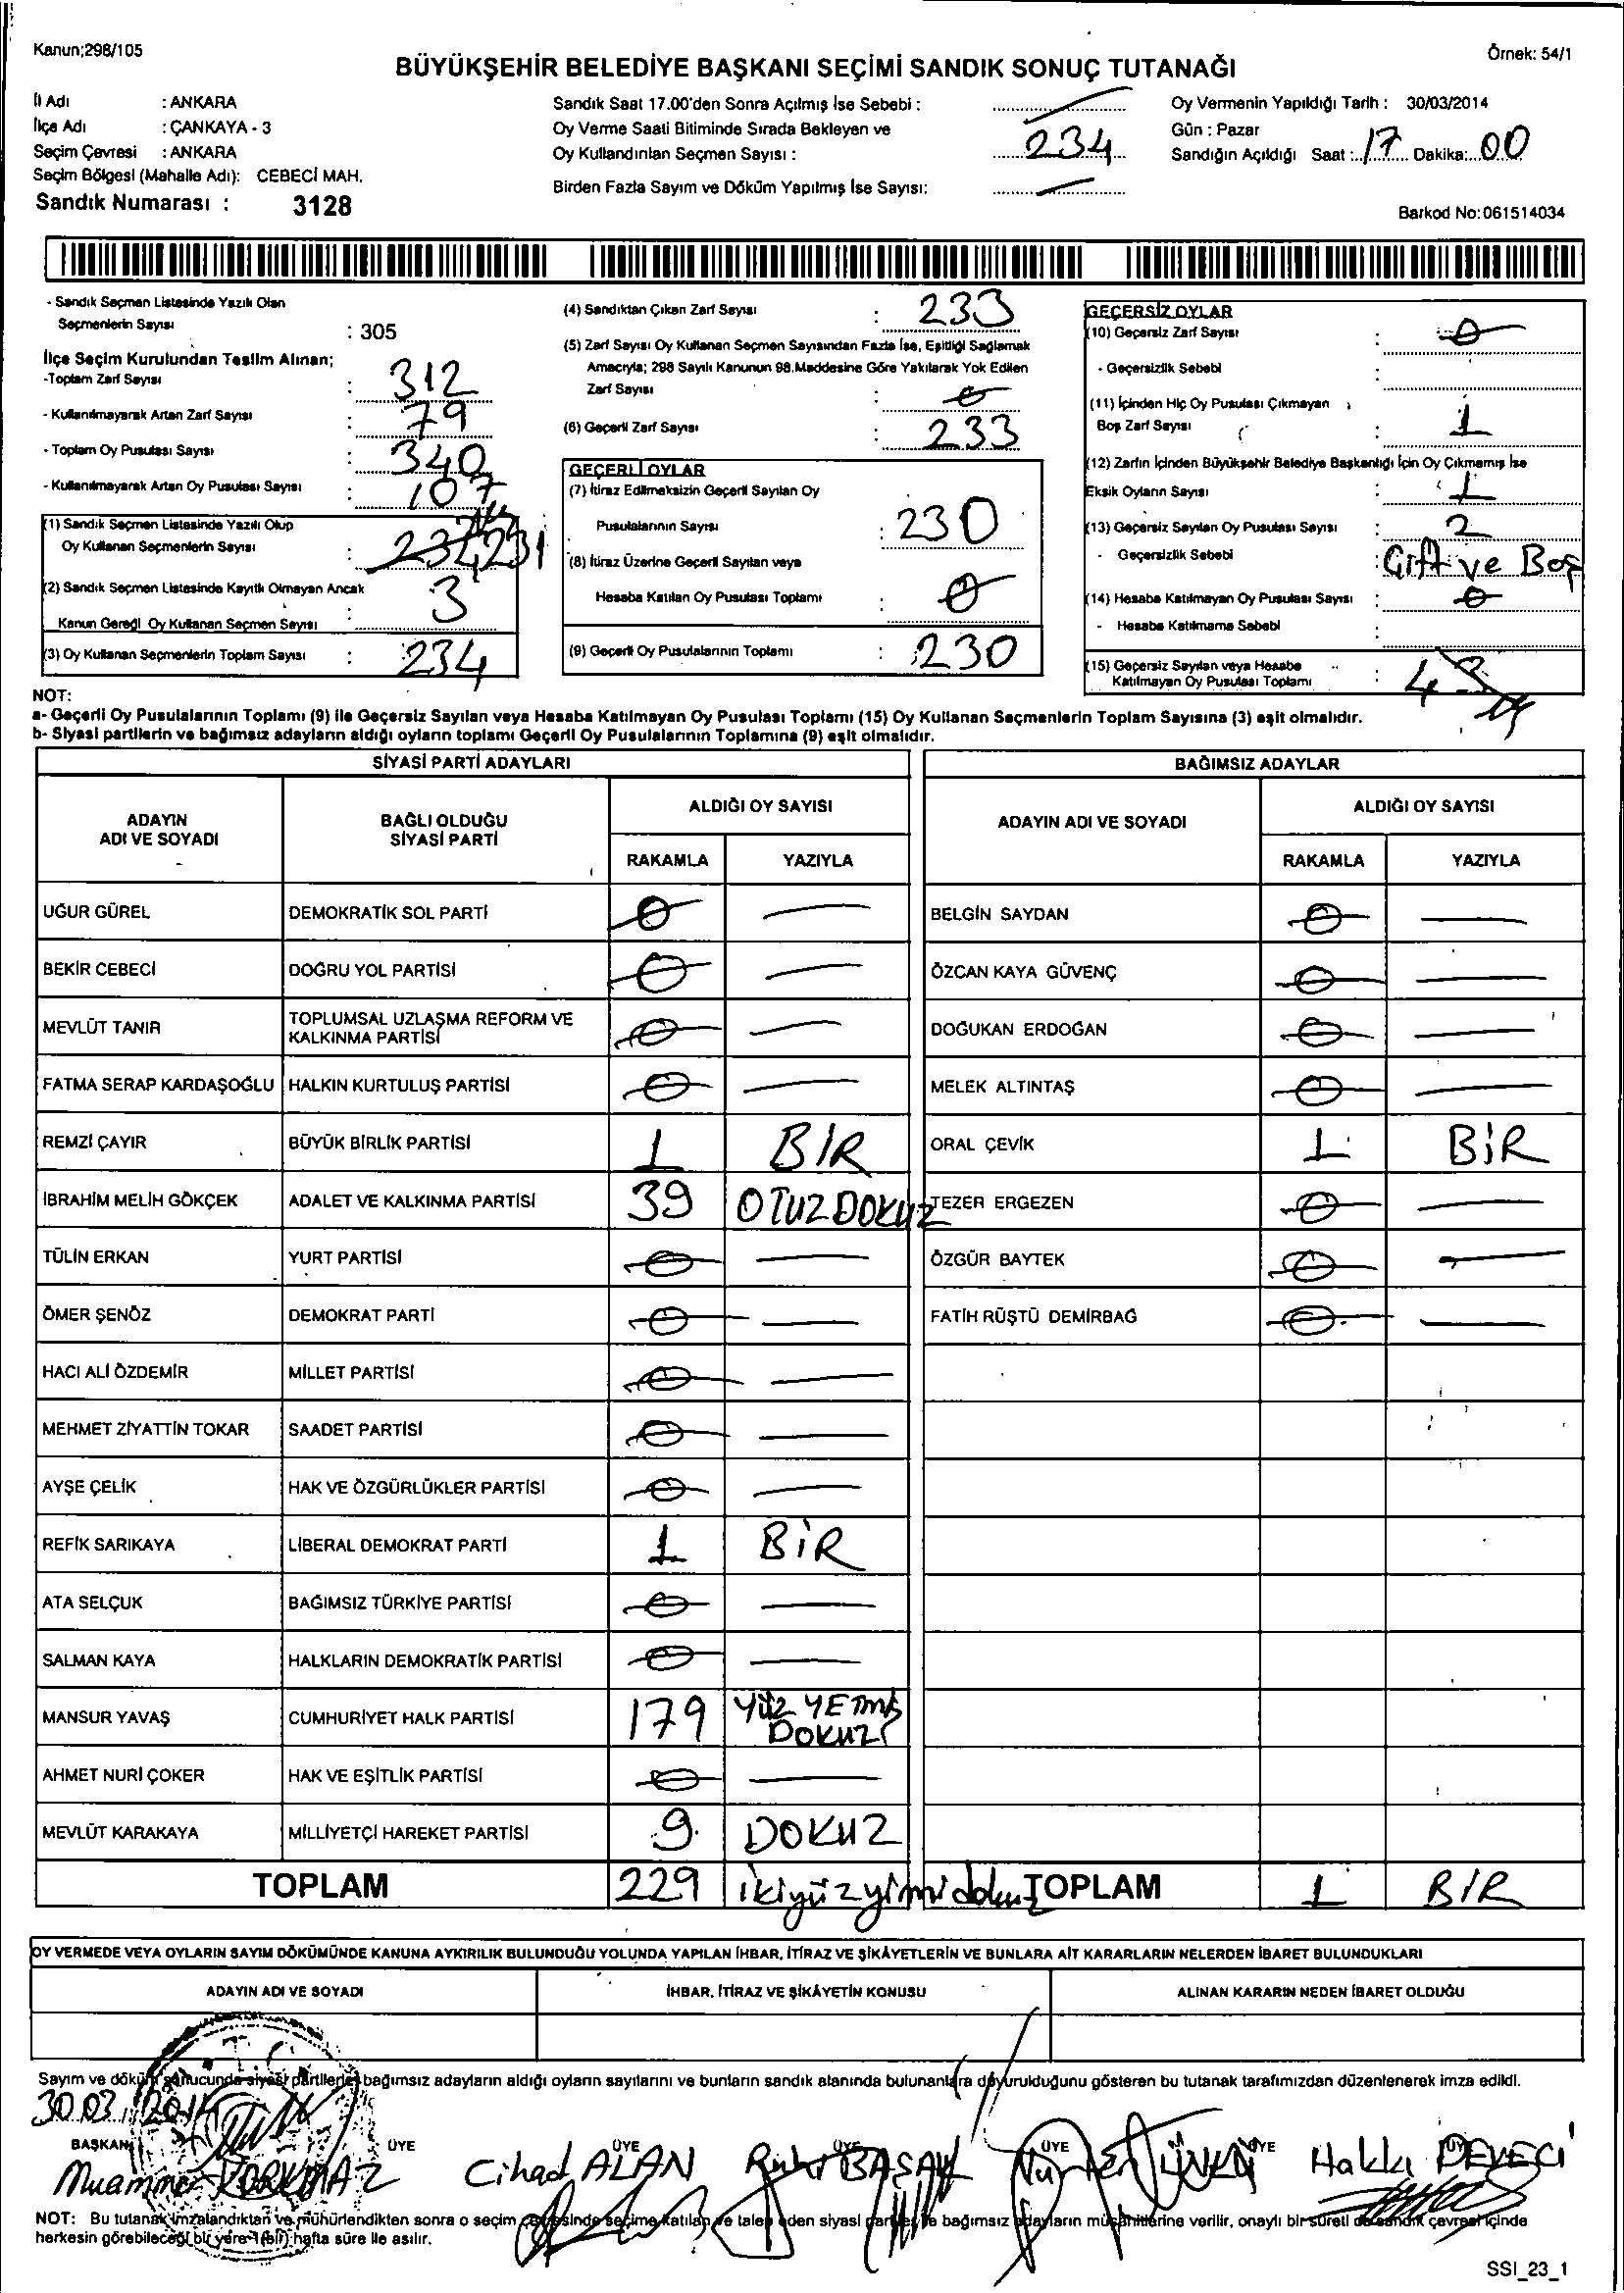 Kanun;298/105
Örnek: 54/1
BÜYÜKŞEHİR BELEDİYE BAŞKANI SEÇİMİ SANDIK SONUÇ TUTANAĞI
İl Adı : ANKARA
İlçe Adı : ÇANKAYA - 3
Seçim Çevresi : ANKARA
Seçim Bölgesi (Mahalle Adı): CEBECİ MAH.
Sandık Numarası : 3128
Sandık Saat 17.00'den Sonra Açılmış İse Sebebi :
Oy Verme Saati Bitiminde Sırada Bekleyen ve
Oy Kullandırılan Seçmen Sayısı : 234
Birden Fazla Sayım ve Döküm Yapılmış İse Sayısı:
Oy Vermenin Yapıldığı Tarih : 30/03/2014
Gün : Pazar
Sandığın Açıldığı Saat : 17 Dakika: 00
Barkod No:061514034
- Sandık Seçmen Listesinde Yazılı Olan
Seçmenlerin Sayısı : 305
İlçe Seçim Kurulundan Teslim Alınan;
-Toplam Zarf Sayısı : 312
- Kullanılmayarak Artan Zarf Sayısı : 79
- Toplam Oy Pusulası Sayısı : 340
- Kullanılmayarak Artan Oy Pusulası Sayısı : 107
(1) Sandık Seçmen Listesinde Yazılı Olup
Oy Kullanan Seçmenlerin Sayısı : 234 231
(2) Sandık Seçmen Listesinde Kayıtlı Olmayan Ancak
Kanun Gereği Oy Kullanan Seçmen Sayısı : 3
(3) Oy Kullanan Seçmenlerin Toplam Sayısı : 234
(4) Sandıktan Çıkan Zarf Sayısı : 233
(5) Zarf Sayısı Oy Kullanan Seçmen Sayısından Fazla İse, Eşitliği Sağlamak
Amacıyla; 298 Sayılı Kanunun 98.Maddesine Göre Yakılarak Yok Edilen
Zarf Sayısı : 0
(6) Geçerli Zarf Sayısı : 233
GEÇERLİ OYLAR
(7) İtiraz Edilmeksizin Geçerli Sayılan Oy
Pusulalarının Sayısı : 230
(8) İtiraz Üzerine Geçerli Sayılan veya
Hesaba Katılan Oy Pusulası Toplamı : 0
(9) Geçerli Oy Pusulalarının Toplamı : 230
GEÇERSİZ OYLAR
(10) Geçersiz Zarf Sayısı : 0
- Geçersizlik Sebebi :
(11) İçinden Hiç Oy Pusulası Çıkmayan
Boş Zarf Sayısı : 1
(12) Zarfın İçinden Büyükşehir Belediye Başkanlığı İçin Oy Çıkmamış İse
Eksik Oyların Sayısı : 1
(13) Geçersiz Sayılan Oy Pusulası Sayısı : 2
- Geçersizlik Sebebi : Çift ve Boş
(14) Hesaba Katılmayan Oy Pusulası Sayısı : 0
- Hesaba Katılmama Sebebi :
(15) Geçersiz Sayılan veya Hesaba
Katılmayan Oy Pusulası Toplamı : 4
NOT:
a- Geçerli Oy Pusulalarının Toplamı (9) ile Geçersiz Sayılan veya Hesaba Katılmayan Oy Pusulası Toplamı (15) Oy Kullanan Seçmenlerin Toplam Sayısına (3) eşit olmalıdır.
b- Siyasi partilerin ve bağımsız adayların aldığı oyların toplamı Geçerli Oy Pusulalarının Toplamına (9) eşit olmalıdır.
SİYASİ PARTİ ADAYLARI
ADAYIN ADI VE SOYADI
BAĞLI OLDUĞU SİYASİ PARTİ
ALDIĞI OY SAYISI
RAKAMLA YAZIYLA
UĞUR GÜREL DEMOKRATİK SOL PARTİ 0 —
BEKİR CEBECİ DOĞRU YOL PARTİSİ 0 —
MEVLÜT TANIR TOPLUMSAL UZLAŞMA REFORM VE KALKINMA PARTİSİ 0 —
FATMA SERAP KARDAŞOĞLU HALKIN KURTULUŞ PARTİSİ 0 —
REMZİ ÇAYIR BÜYÜK BİRLİK PARTİSİ 1 BİR
İBRAHİM MELİH GÖKÇEK ADALET VE KALKINMA PARTİSİ 39 OTUZDOKUZ
TÜLİN ERKAN YURT PARTİSİ 0 —
ÖMER ŞENÖZ DEMOKRAT PARTİ 0 —
HACI ALİ ÖZDEMİR MİLLET PARTİSİ 0 —
MEHMET ZİYATTİN TOKAR SAADET PARTİSİ 0 —
AYŞE ÇELİK HAK VE ÖZGÜRLÜKLER PARTİSİ 0 —
REFİK SARIKAYA LİBERAL DEMOKRAT PARTİ 1 BİR
ATA SELÇUK BAĞIMSIZ TÜRKİYE PARTİSİ 0 —
SALMAN KAYA HALKLARIN DEMOKRATİK PARTİSİ 0 —
MANSUR YAVAŞ CUMHURİYET HALK PARTİSİ 179 YÜZ YETMİŞ DOKUZ
AHMET NURİ ÇOKER HAK VE EŞİTLİK PARTİSİ 0 —
MEVLÜT KARAKAYA MİLLİYETÇİ HAREKET PARTİSİ 9 DOKUZ
TOPLAM 229 ikiyüzyirmidokuz
BAĞIMSIZ ADAYLAR
ADAYIN ADI VE SOYADI
ALDIĞI OY SAYISI
RAKAMLA YAZIYLA
BELGİN SAYDAN 0 —
ÖZCAN KAYA GÜVENÇ 0 —
DOĞUKAN ERDOĞAN 0 —
MELEK ALTINTAŞ 0 —
ORAL ÇEVİK 1 BİR
TEZER ERGEZEN 0 —
ÖZGÜR BAYTEK 0 —
FATİH RÜŞTÜ DEMİRBAĞ 0 —
TOPLAM 1 BİR
OY VERMEDE VEYA OYLARIN SAYIM DÖKÜMÜNDE KANUNA AYKIRILIK BULUNDUĞU YOLUNDA YAPILAN İHBAR, İTİRAZ VE ŞİKÂYETLERİN VE BUNLARA AİT KARARLARIN NELERDEN İBARET BULUNDUKLARI
ADAYIN ADI VE SOYADI
İHBAR, İTİRAZ VE ŞİKÂYETİN KONUSU
ALINAN KARARIN NEDEN İBARET OLDUĞU
Sayım ve döküm sonucunda siyasi partilerle bağımsız adayların aldığı oyların sayılarını ve bunların sandık alanında bulunanlara duyurulduğunu gösteren bu tutanak tarafımızdan düzenlenerek imza edildi.
30.03.2014
BAŞKAN ÜYE ÜYE ÜYE ÜYE ÜYE ÜYE
Muammer KORKMAZ Cihad ALAN Ruhi BAŞAK Nurten ÜNLÜ Hakkı DEVECİ
NOT: Bu tutanak imzalandıktan ve mühürlendikten sonra o seçim çevresinde seçime katılan ve talep eden siyasi partiler ile bağımsız adayların müşahitlerine verilir, onaylı bir sureti de sandık çevresi içinde
herkesin görebileceği bir yere 1 (bir) hafta süre ile asılır.
SSI_23_1